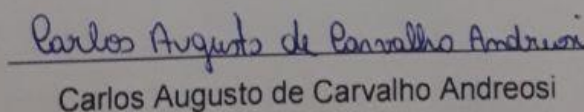 Carlos Augusto de Carvalho Andreosi
Carlos Augusto de Carvalho Andreosi